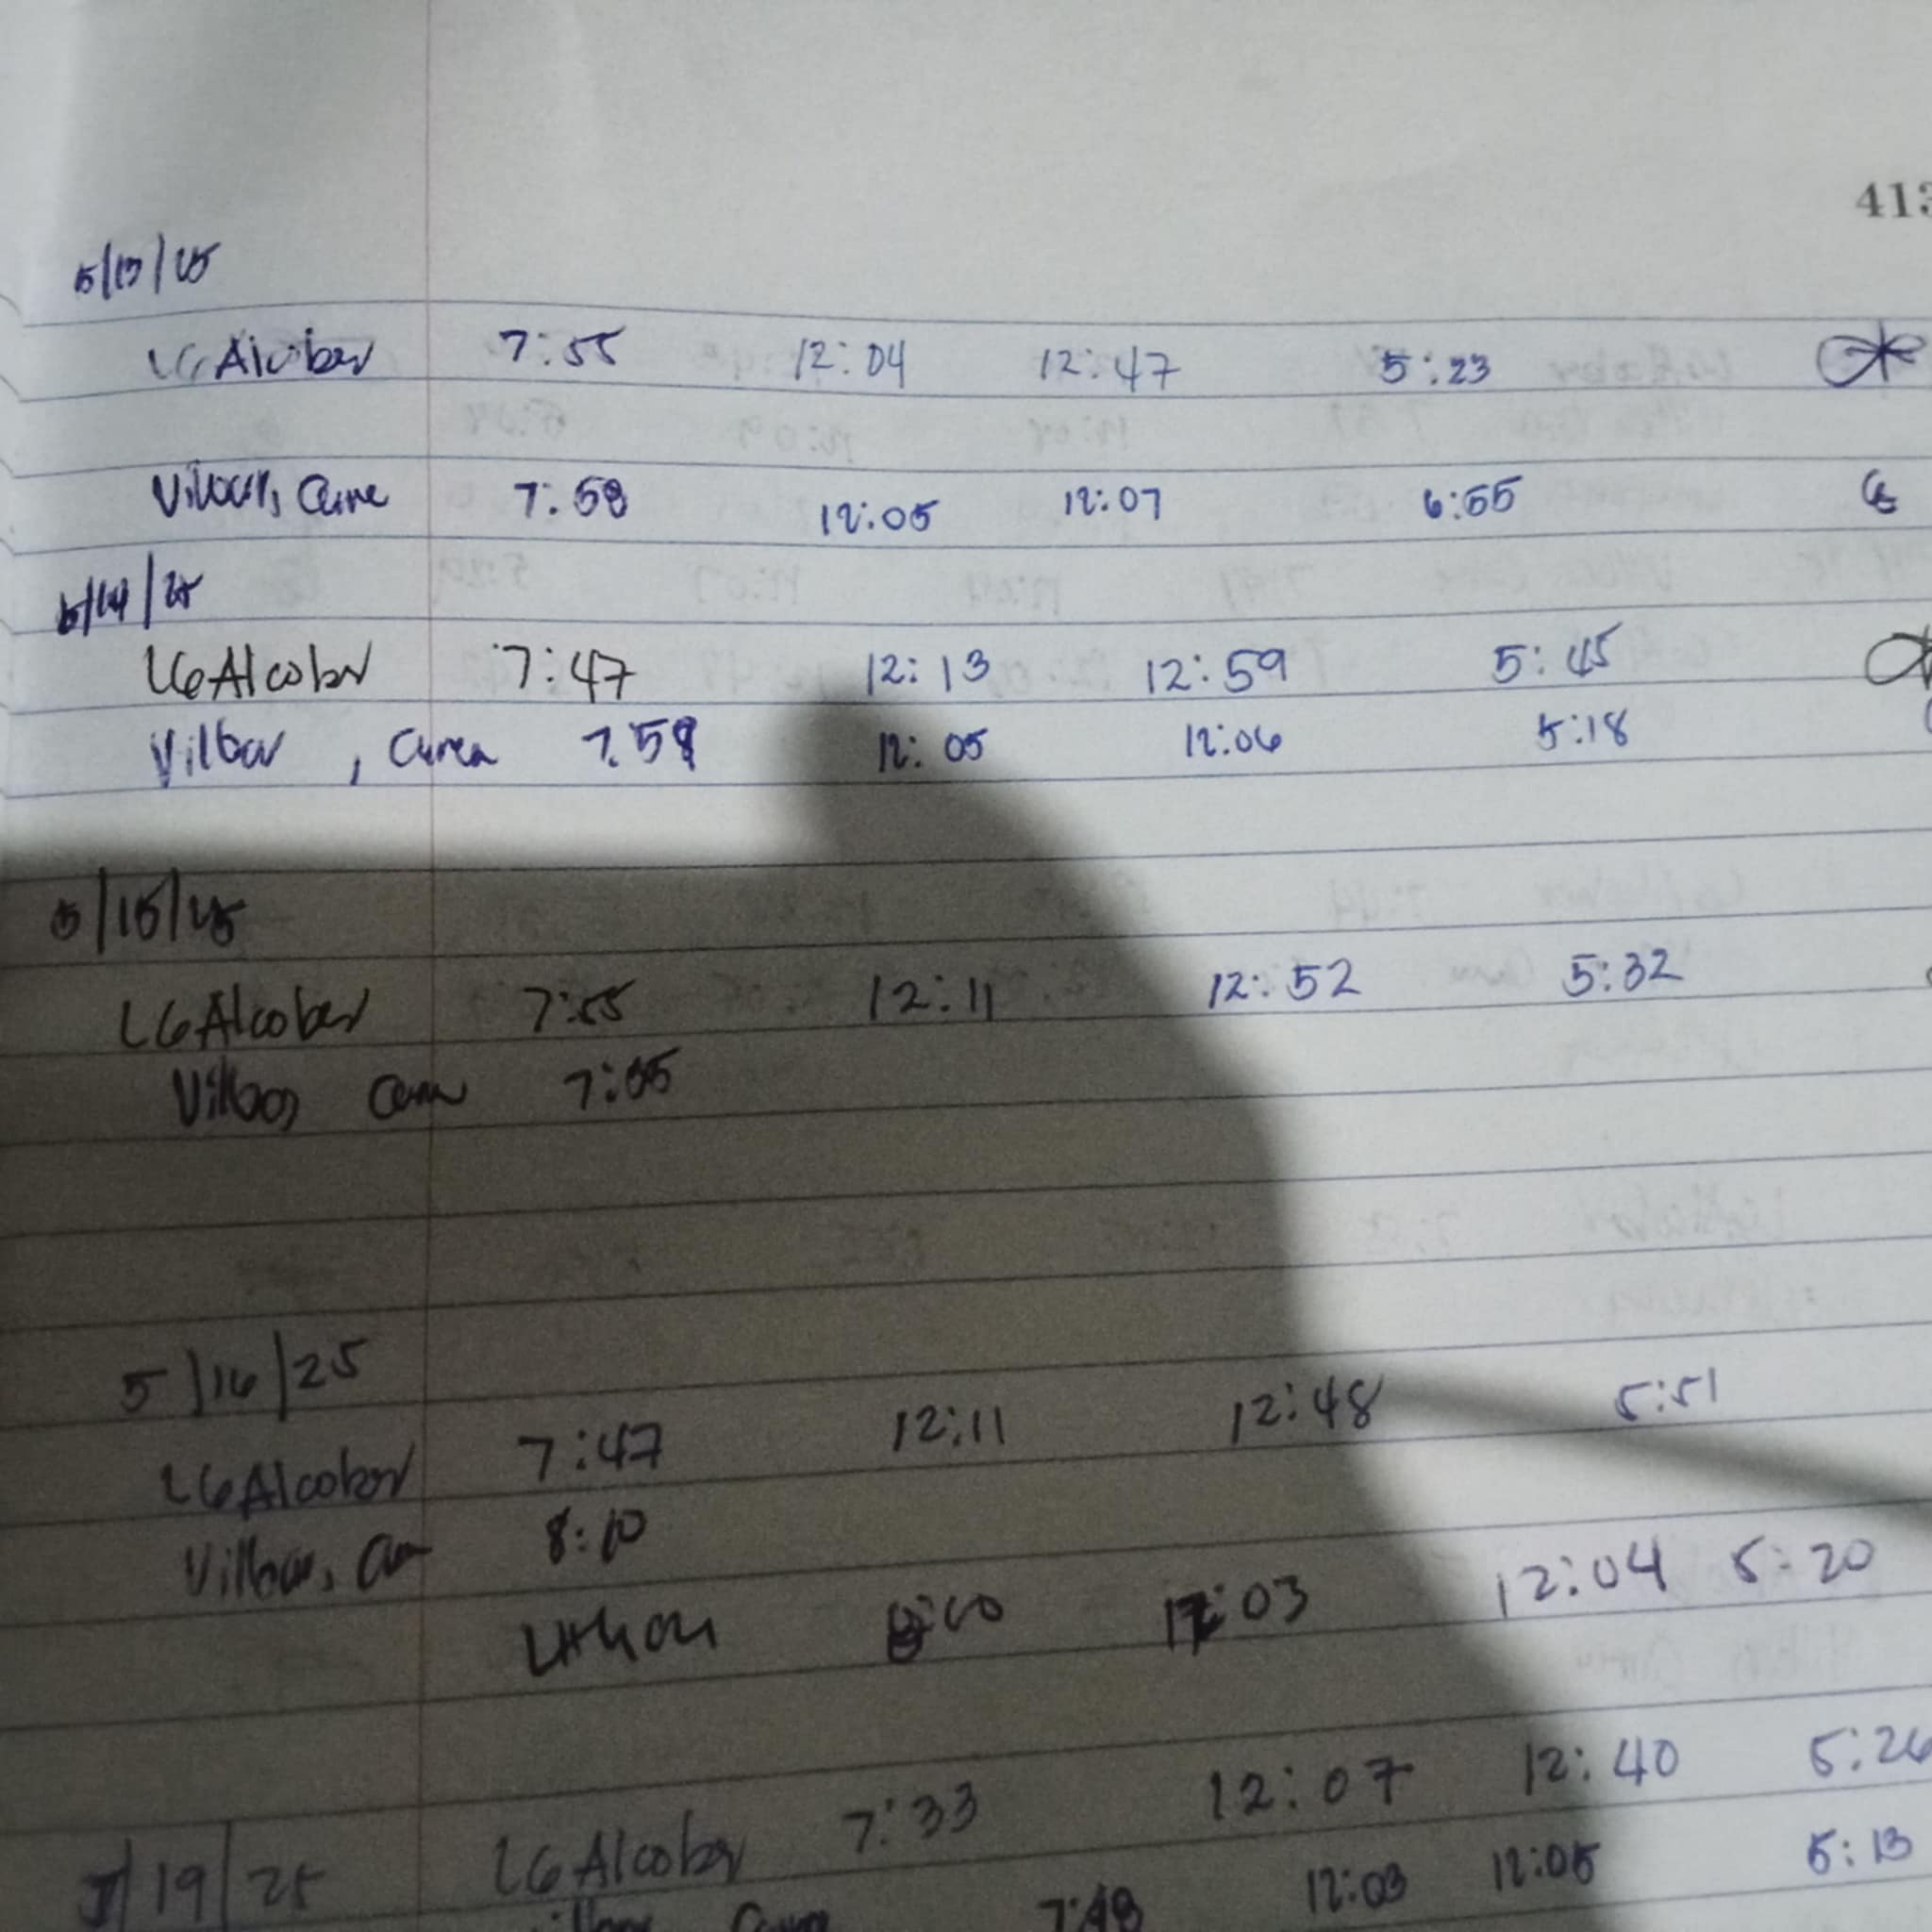 413
5/13/25
LG Alcober 7:55 12:04 12:47 5:23
Villar, 7:58 12:05 12:07 6:55
5/14/25
LG Alcober 7:47 12:13 12:59 5:45
Vilbar, 7:59 12:05 12:06 5:18
5/15/25
LG Alcober 7:55 12:11 12:52 5:32
7:55
5/16/25
LG Alcober 7:47 12:11 12:48 5:51
8:10
12:03 12:04 5:20
5/19/25 LG Alcober 7:33 12:07 12:40 5:26
7:48 12:03 12:05 5:13